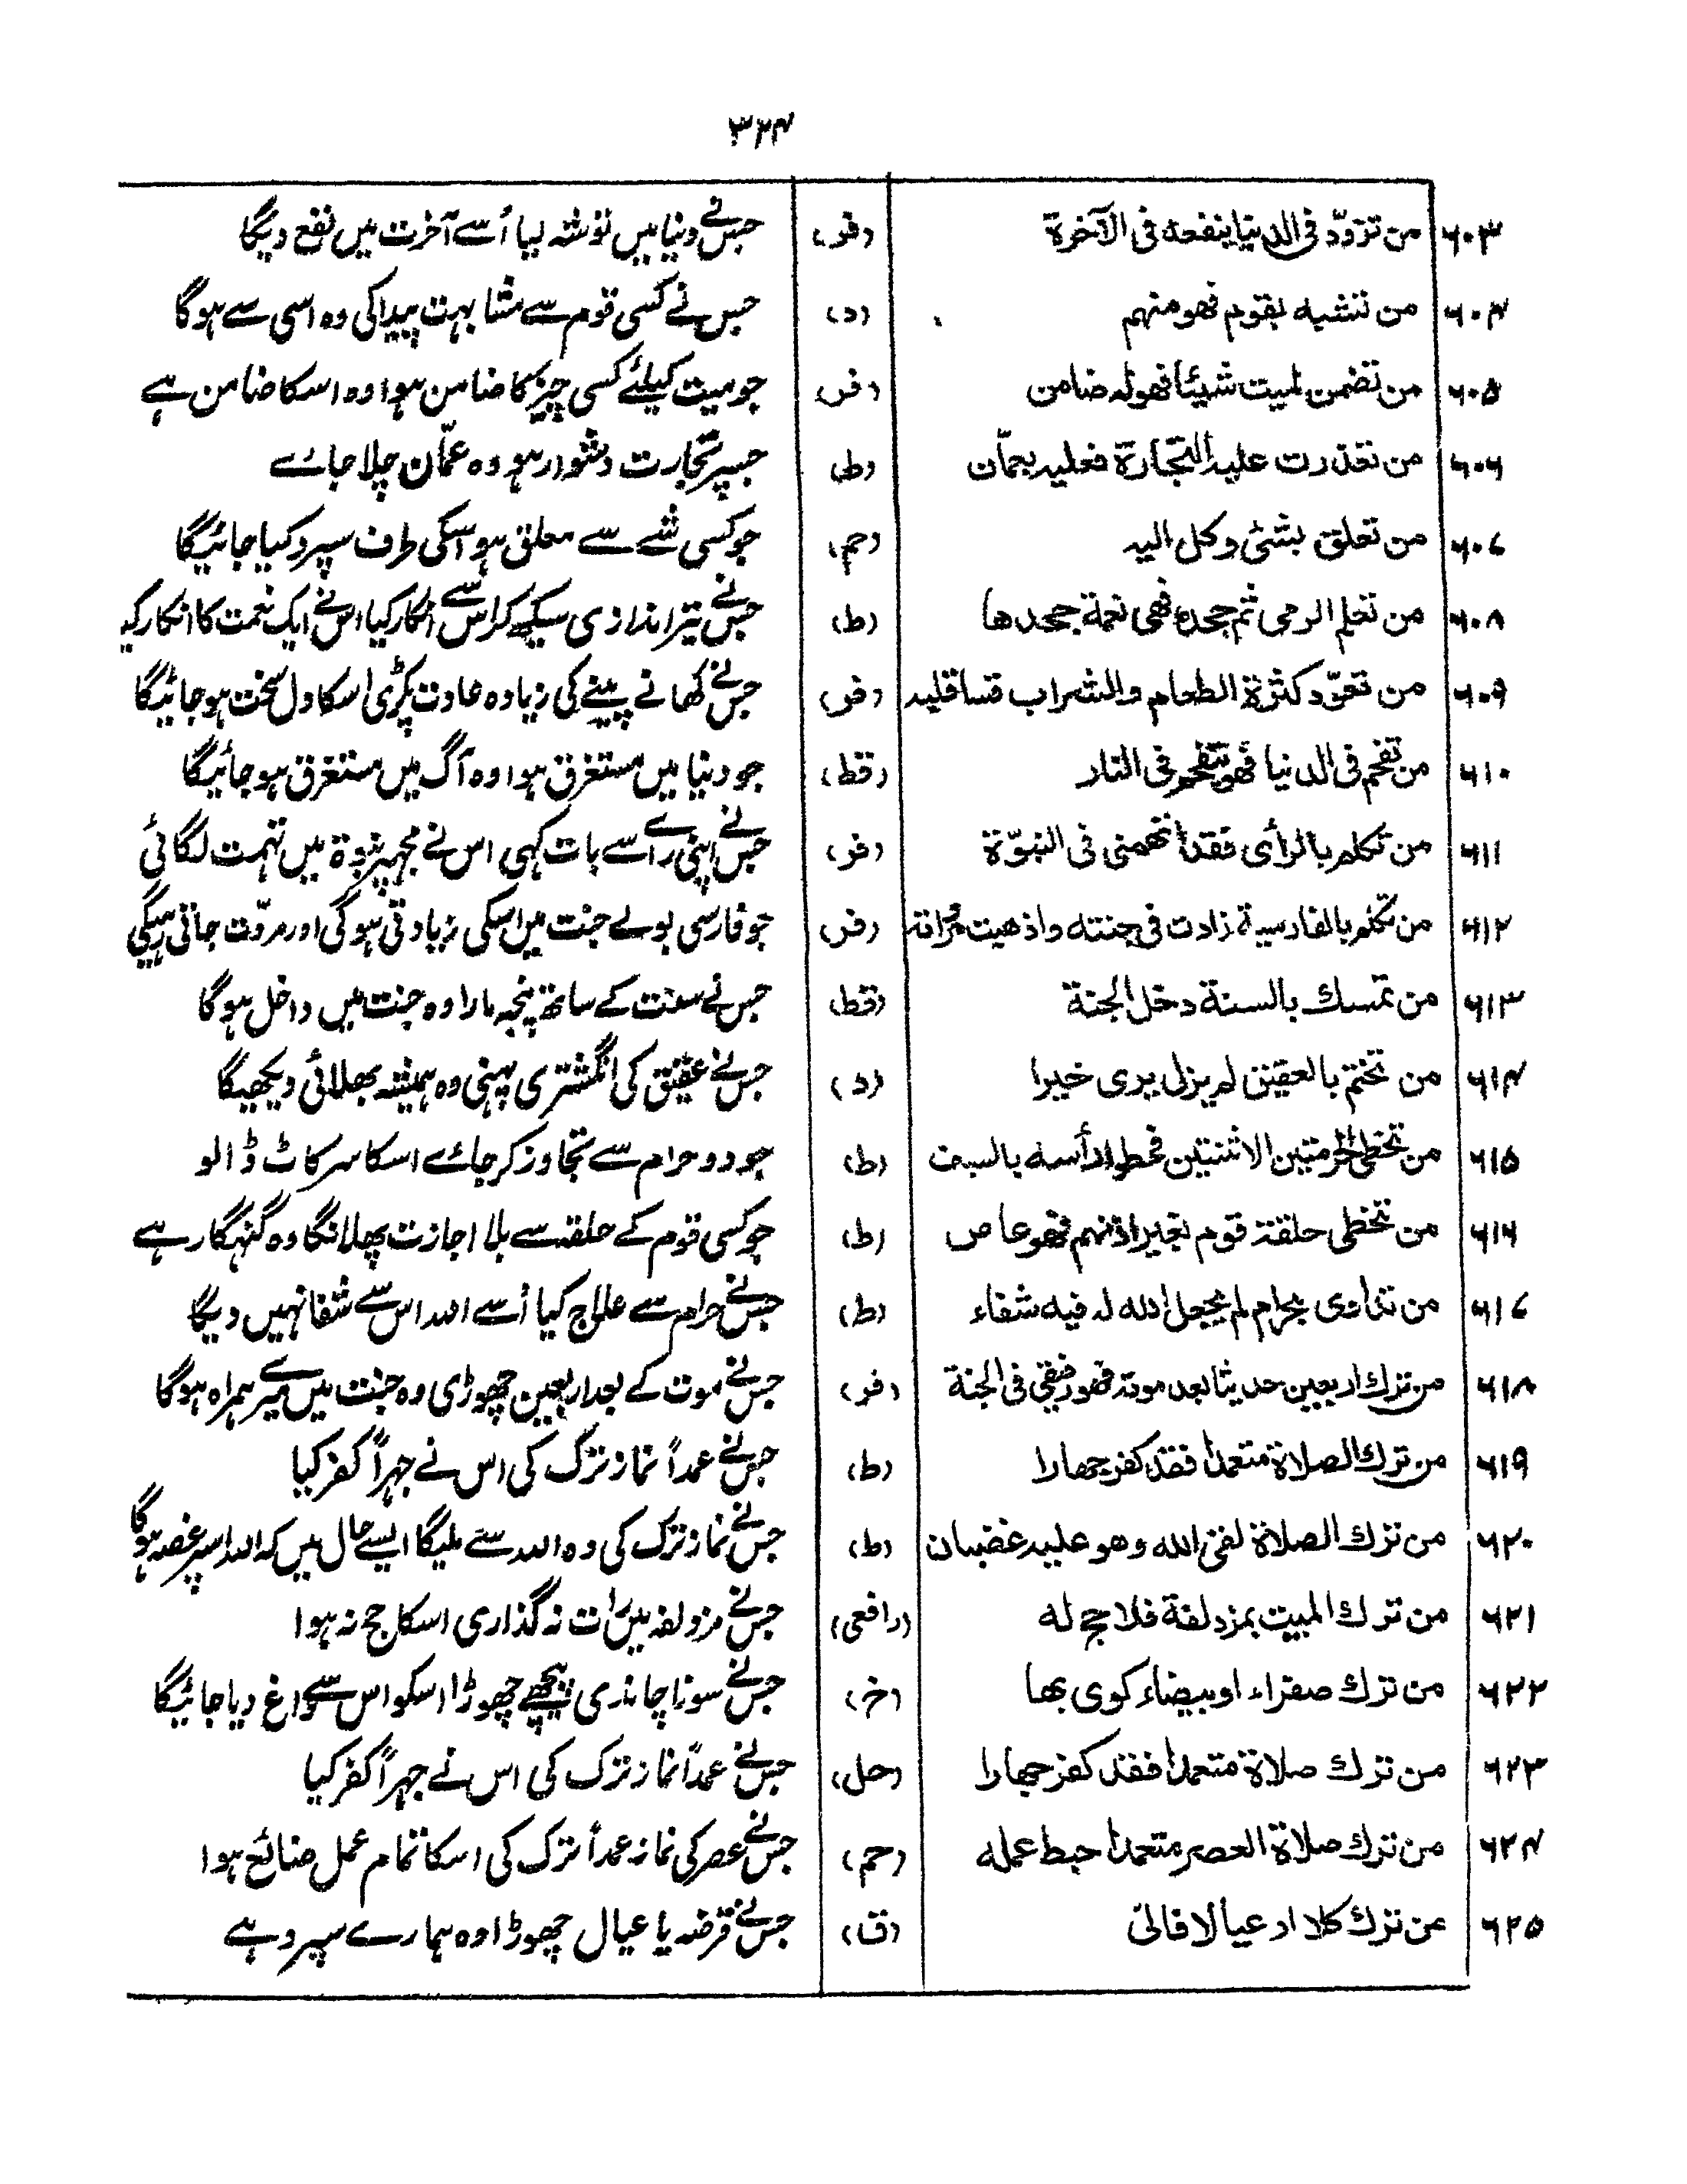 ۳۲۴
۶۰۳ من تزوّد فی الدنیا ینفعه فی الآخرة (فر) جس نے دنیا میں توشہ لیا اُسے آخرت میں نفع دیگا
۶۰۴ من تشبه بقوم فهو منهم (د) جس نے کسی قوم سے مشابہت پیدا کی وہ اسی سے ہوگا
۶۰۵ من تضمن لمیت شیئا فهو له ضامن (فر) جو میت کیلئے کسی چیز کا ضامن ہوا وہ اسکا ضامن ہے
۶۰۶ من تعذرت علیه التجارة فعلیه بعمّان (ط) جسپر تجارت دشوار ہو وہ عمّان چلا جائے
۶۰۷ من تعلق بشئ وکل الیه (حم) جو کسی شے سے معلق ہو اسکی طرف سپرد کیا جائیگا
۶۰۸ من تعلم الرمی ثم جحده فهی نعمة جحدها (ط) جس نے تیر اندازی سیکھ کر اس سے انکار کیا اس نے ایک نعمت کا انکار کیا
۶۰۹ من تعوّد کثرة الطعام والشراب قسا قلبه (فر) جس نے کھانے پینے کی زیادہ عادت پکڑی اسکا دل سخت ہو جائیگا
۶۱۰ من تقحم فی الدنیا فهو یتقحم فی النار (قط) جو دنیا میں مستغرق ہوا وہ آگ میں مستغرق ہو جائیگا
۶۱۱ من تکلم بالرأی فقد اتهمنی فی النبوّة (فر) جس نے اپنی رائے سے بات کہی اس نے مجہپر نبوة میں تہمت لگائی
۶۱۲ من تکلم بالفارسیة زادت فی جنته واذهبت مرأته (فر) جو فارسی بولے جنت میں اسکی زیادتی ہوگی اور مروّت جاتی رہیگی
۶۱۳ من تمسك بالسنة دخل الجنة (قط) جس نے سنت کے ساتھ پنجہ مارا وہ جنت میں داخل ہوگا
۶۱۴ من تختم بالعقیق لم یزل یری خیرا (د) جس نے عقیق کی انگشتری پہنی وہ ہمیشہ بھلائی دیکھیگا
۶۱۵ من تخطی الحرمتین الاثنتین فخطوا رأسه بالسیف (ط) جو دو حرام سے تجاوز کر جائے اسکا سر کاٹ ڈالو
۶۱۶ من تخطی حلقة قوم بغیر اذنهم فهو عاص (ط) جو کسی قوم کے حلقہ سے بلا اجازت پھلانگا وہ گنہگار ہے
۶۱۷ من تداوی بحرام لم یجعل الله له فیه شفاء (ط) جس نے حرام سے علاج کیا اُسے اللہ اس سے شفا نہیں دیگا
۶۱۸ من ترك اربعین حدیثا بعد موته فهو رفیقی فی الجنة (فر) جس نے موت کے بعد اربعین چھوڑی وہ جنت میں میرے ہمراہ ہوگا
۶۱۹ من ترك الصلاة متعمدا فقد کفر جهارا (ط) جس نے عمداً نماز ترک کی اس نے جہراً کفر کیا
۶۲۰ من ترك الصلاة لقی الله وهو علیه غضبان (ط) جس نے نماز ترک کی وہ اللہ سے ملیگا ایسے حال میں کہ اللہ اسپر غصہ ہوگا
۶۲۱ من ترك المبیت بمزدلفة فلا حج له (رافعی) جس نے مزدلفہ میں رات نہ گذاری اسکا حج نہ ہوا
۶۲۲ من ترك صفراء او بیضاء کوی بها (خ) جس نے سونا چاندی پیچھے چھوڑا اسکو اس سے داغ دیا جائیگا
۶۲۳ من ترك صلاة متعمدا فقد کفر جهارا (حل) جس نے عمداً نماز ترک کی اس نے جہراً کفر کیا
۶۲۴ من ترك صلاة العصر متعمدا حبط عمله (حم) جس نے عصر کی نماز عمداً ترک کی اسکا تمام عمل ضائع ہوا
۶۲۵ من ترك کلا او عیالا فالیّ (ق) جس نے قرضہ یا عیال چھوڑا وہ ہمارے سپرد ہے